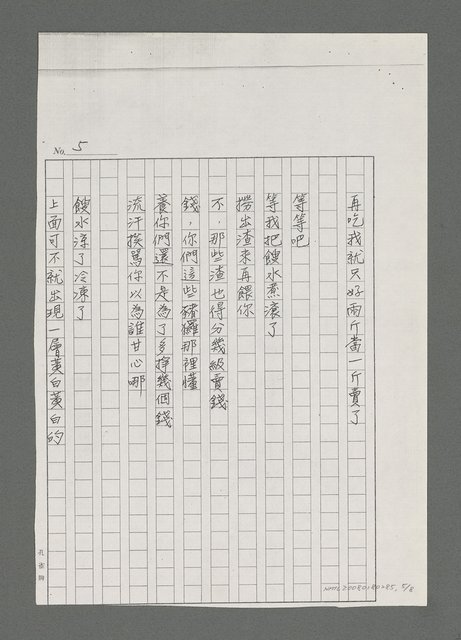 No. 5
再吃我就只好兩斤當一斤賣了
等等吧
等我把餿水煮滾了
撈出渣來再餵你
不,那些渣也得分幾級賣錢
錢,你們這些豬玀那裡懂
養你們還不是為了多掙幾個錢
流汗挨罵你以為誰甘心哪
餿水涼了冷凍了
上面可不就出現一層黃白黃白的
孔雀牌
NMTL20080180285, 5/8